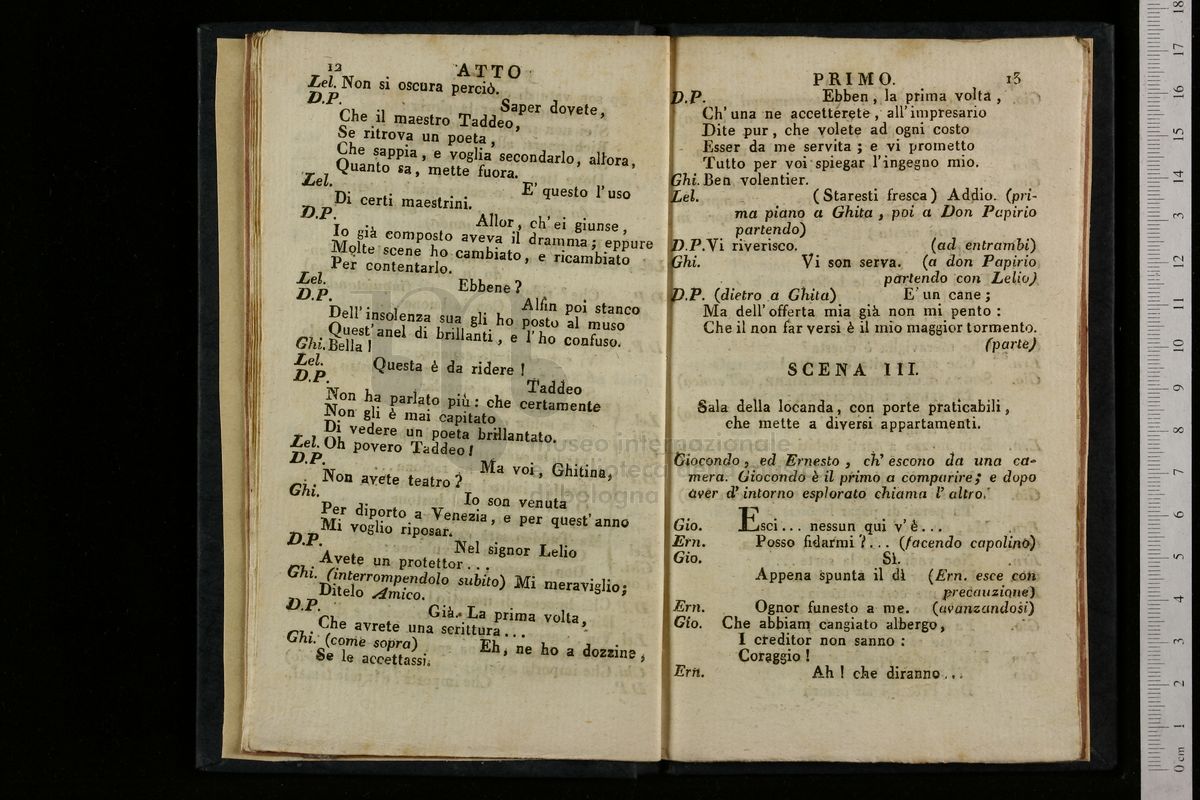 12 ATTO
Lel. Non si oscura perciò.
D.P. Saper dovete,
Che il maestro Taddeo,
Se ritrova un poeta,
Che sappia, e voglia secondarlo, allora,
Quanto sa, mette fuora.
Lel. E' questo l'uso
Di certi maestrini.
D.P. Allor, ch'ei giunse,
Io già composto aveva il dramma; eppure
Molte scene ho cambiato, e ricambiato
Per contentarlo.
Lel. Ebbene?
D.P. Alfin poi stanco
Dell'insolenza sua gli ho posto al muso
Quest'anel di brillanti, e l'ho confuso.
Ghi. Bella!
Lel. Questa è da ridere!
D.P. Taddeo
Non ha parlato più: che certamente
Non gli è mai capitato
Di vedere un poeta brillantato.
Lel. Oh povero Taddeo!
D.P. Ma voi, Ghitina,
Non avete teatro?
Ghi. Io son venuta
Per diporto a Venezia, e per quest'anno
Mi voglio riposar.
D.P. Nel signor Lelio
Avete un protettor...
Ghi. (interrompendolo subito) Mi meraviglio;
Ditelo Amico.
D.P. Già. La prima volta,
Che avrete una scrittura...
Ghi. (come sopra) Eh, ne ho a dozzine,
Se le accettassi.
PRIMO. 13
D.P. Ebben, la prima volta,
Ch'una ne accetterete, all'impresario
Dite pur, che volete ad ogni costo
Esser da me servita; e vi prometto
Tutto per voi spiegar l'ingegno mio.
Ghi. Ben volentier.
Lel. (Staresti fresca) Addio. (pri-
ma piano a Ghita, poi a Don Papirio
partendo)
D.P. Vi riverisco. (ad entrambi)
Ghi. Vi son serva. (a don Papirio
partendo con Lelio)
D.P. (dietro a Ghita) E' un cane;
Ma dell'offerta mia già non mi pento:
Che il non far versi è il mio maggior tormento.
(parte)
SCENA III.
Sala della locanda, con porte praticabili,
che mette a diversi appartamenti.
Giocondo, ed Ernesto, ch'escono da una ca-
mera. Giocondo è il primo a comparire; e dopo
aver d'intorno esplorato chiama l'altro.
Gio. Esci... nessun qui v'è...
Ern. Posso fidarmi?... (facendo capolino)
Gio. Sì.
Appena spunta il dì (Ern. esce con
precauzione)
Ern. Ognor funesto a me. (avanzandosi)
Gio. Che abbiam cangiato albergo,
I creditor non sanno:
Coraggio!
Ern. Ah! che diranno...
museo internazionale
biblioteca della musica
di bologna
18
17
16
15
14
13
12
11
10
9
8
7
6
5
4
3
2
1
0 cm